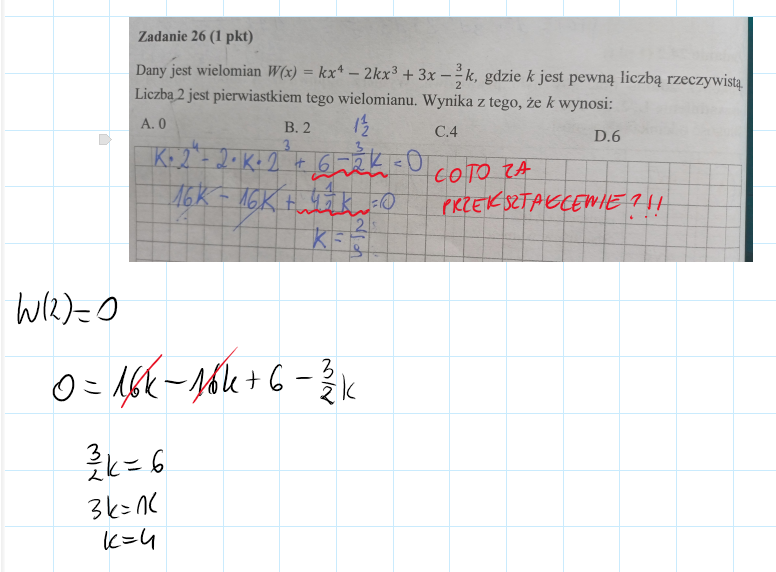 Zadanie 26 (1 pkt)
Dany jest wielomian W(x) = kx⁴ − 2kx³ + 3x − 3/2 k, gdzie k jest pewną liczbą rzeczywistą.
Liczba 2 jest pierwiastkiem tego wielomianu. Wynika z tego, że k wynosi:
A. 0 B. 2 C.4 D.6
1 1/2
k·2⁴ − 2·k·2³ + 6 − 3/2 k = 0
CO TO ZA
16k − 16k + 4 1/2 k = 0
PRZEKSZTAŁCENIE?!!
k = 2/9
W(2)=0
0 = 16k − 16k + 6 − 3/2 k
3/2 k = 6
3k = 12
k = 4